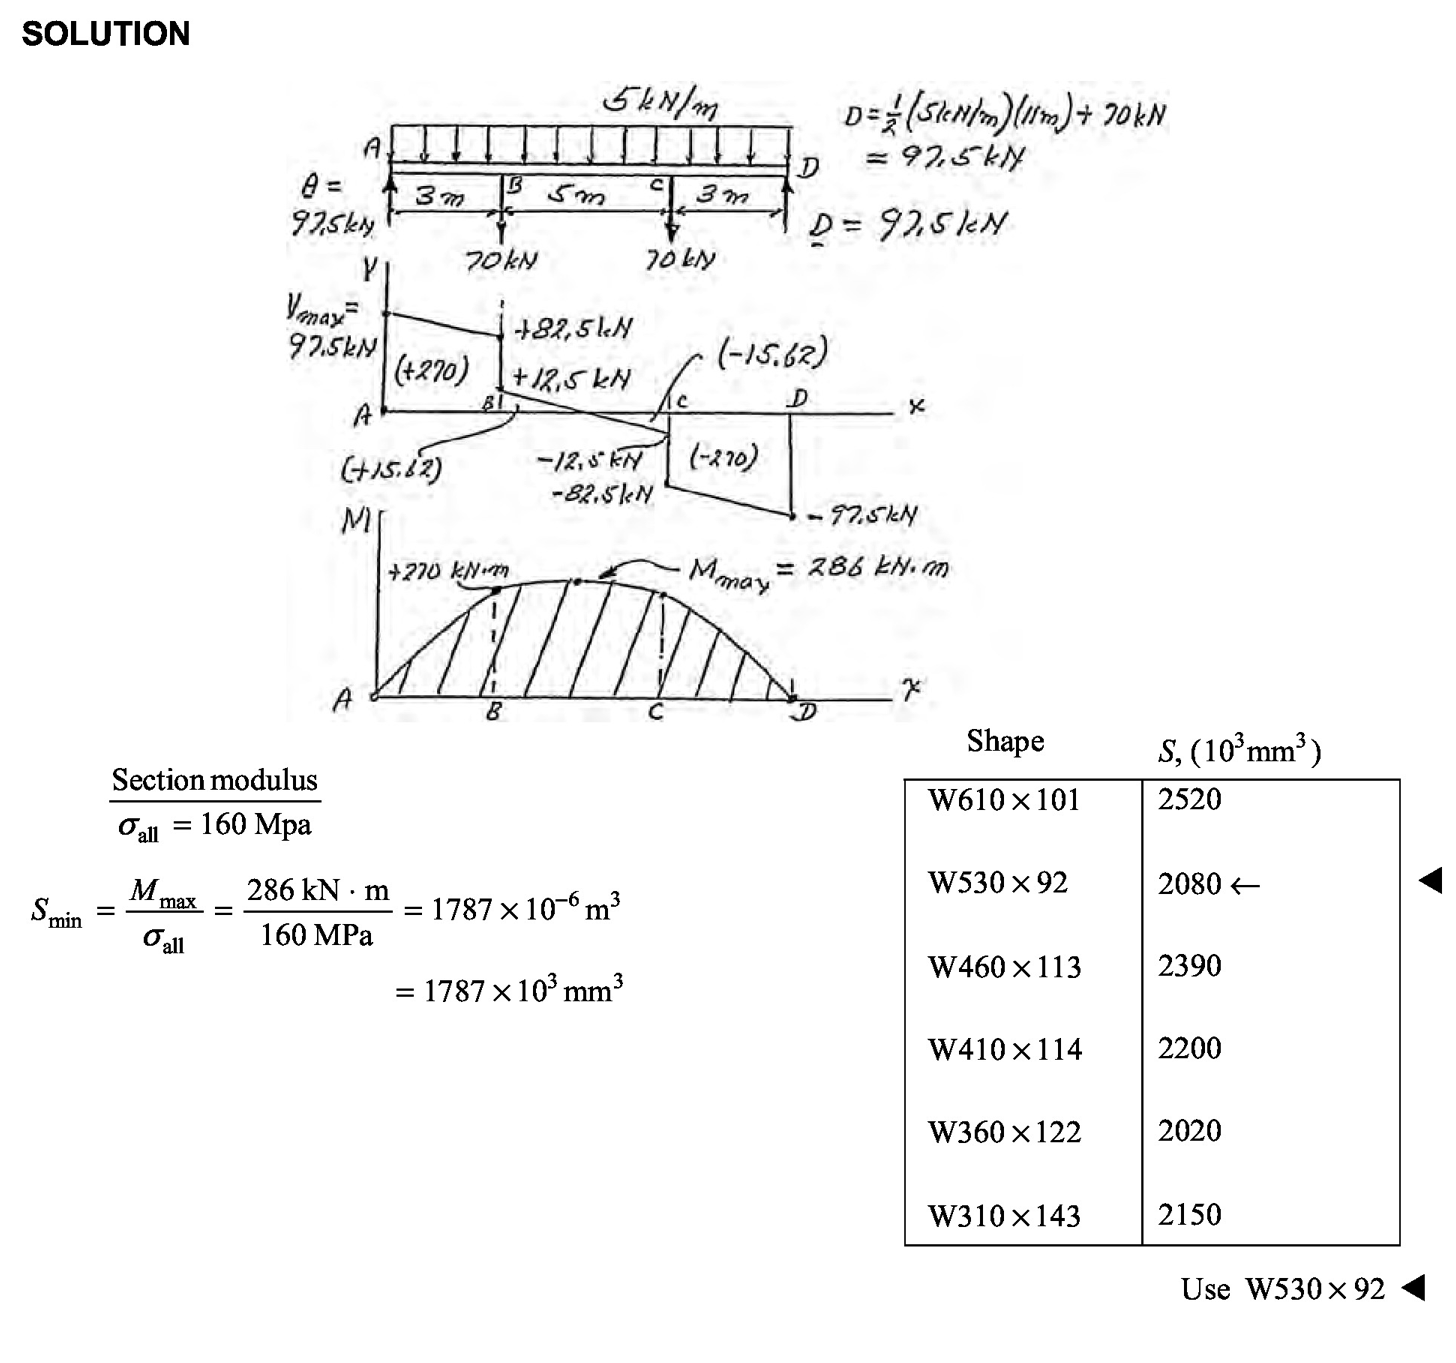 SOLUTION
5 kN/m
D = 1/2 (5kN/m)(11m) + 70kN
= 97.5 kN
A
D
A =
97.5kN
3 m
B
5 m
C
3 m
D = 97.5 kN
70 kN
70 kN
V
Vmax =
97.5kN
+82.5kN
(-15.62)
(+270)
+12.5 kN
A
B
C
D
x
(+15.62)
-12.5 kN
(-270)
-82.5kN
-97.5kN
M
+270 kN·m
Mmax = 286 kN·m
A
B
C
D
x
Section modulus
σall = 160 Mpa
Smin = Mmax / σall = 286 kN · m / 160 MPa = 1787 × 10⁻⁶ m³
= 1787 × 10³ mm³
Shape S, (10³mm³)
W610 × 101 2520
W530 × 92 2080 ← ◀
W460 × 113 2390
W410 × 114 2200
W360 × 122 2020
W310 × 143 2150
Use W530 × 92 ◀